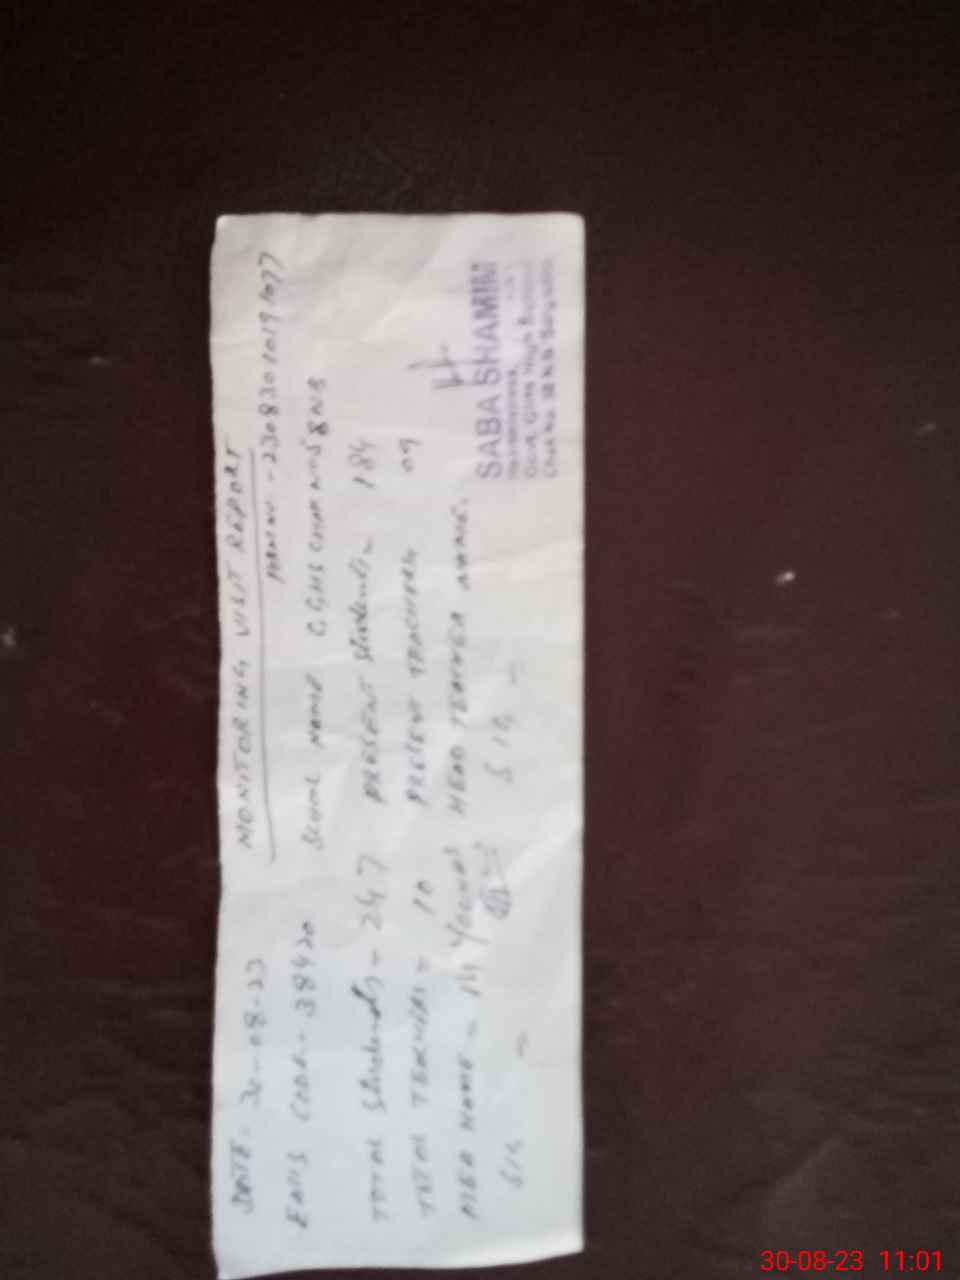 MONITORING VISIT REPORT
DATE: 30-08-23 FORM NO. - 23083010191077
EMIS CODE - 38420 SCHOOL NAME GGHS CHAK NO 58NB
TOTAL Students - 247 PRESENT Students - 184
TOTAL TEACHERS = 10 PRESENT TEACHERS 09
MEA NAME - M YOUNAS HEAD TEACHER NAME.
SIG SIG -
SABA SHAMIM
Headmistress
Govt. Girls High School
Chak No. 58 N.B Sargodha
30-08-23 11:01